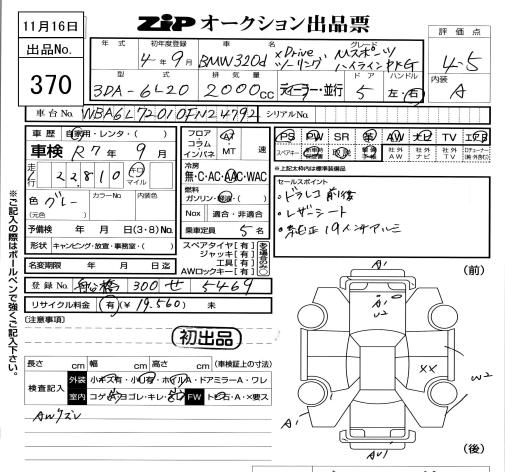 11月16日
出品No.
370
ZIP オークション出品票
年式 初年度登録 車名 グレード
4年9月 BMW320d xDrive ツーリング Mスポーツ ハイラインPKG
型式 排気量 ドア ハンドル
3DA-6L20 2000cc ディーラー・並行 5 左・右
評価点
4-5
内装
A
車台No. WBA6L72010FN24792 シリアルNo.
車歴 自家用・レンタ・( )
車検 R7年9月
走行 22,810 キロ マイル
色 グレー カラーNo. 内装色
(元色)
予備検 年 月 日(3・8)No.
形状 キャンピング・放置・事務室・( )
名変期限 年 月 日迄
フロア コラム インパネ AT・MT 速
冷房 無・C・AC・AAC・WAC
燃料 ガソリン・軽油・( )
Nox 適合・非適合
乗車定員 5名
スペアタイヤ[有]
ジャッキ[有]
工具[有]
AWロックキー[有]
ある場合のみ○
PS PW SR 革 AW ナビ TV エアB
スペアキー 取説 社外AW 社外ナビ 社外TV
※上記太枠内は標準装備品
セールスポイント
・ドラレコ前後
・レザーシート
・純正19インチアルミ
登録No. 船橋 300 せ 5469
リサイクル料金 (有)(¥19,560) 未
(注意事項)
初出品
長さ cm 幅 cm 高さ cm (車検証上の寸法)
検査記入 外装 小キズ有・小凹有・ホイルA・ドアミラーA・ワレ
室内 コゲ・ヨゴレ・キレ・ FW トビ石・A・×要ス
AWスレ
※ご記入の際はボールペンで強くご記入下さい。
(前)
A1
A1
U2
XX
W2
A1
AU1
(後)